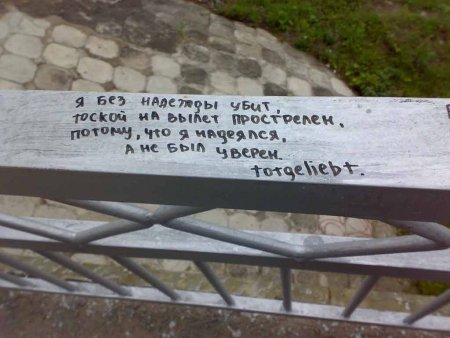 Я БЕЗ НАДЕЖДЫ УБИТ,
ТОСКОЙ НА ВЫЛЕТ ПРОСТРЕЛЕН,
ПОТОМУ, ЧТО Я НАДЕЯЛСЯ,
А НЕ БЫЛ УВЕРЕН.
totgeliebt.